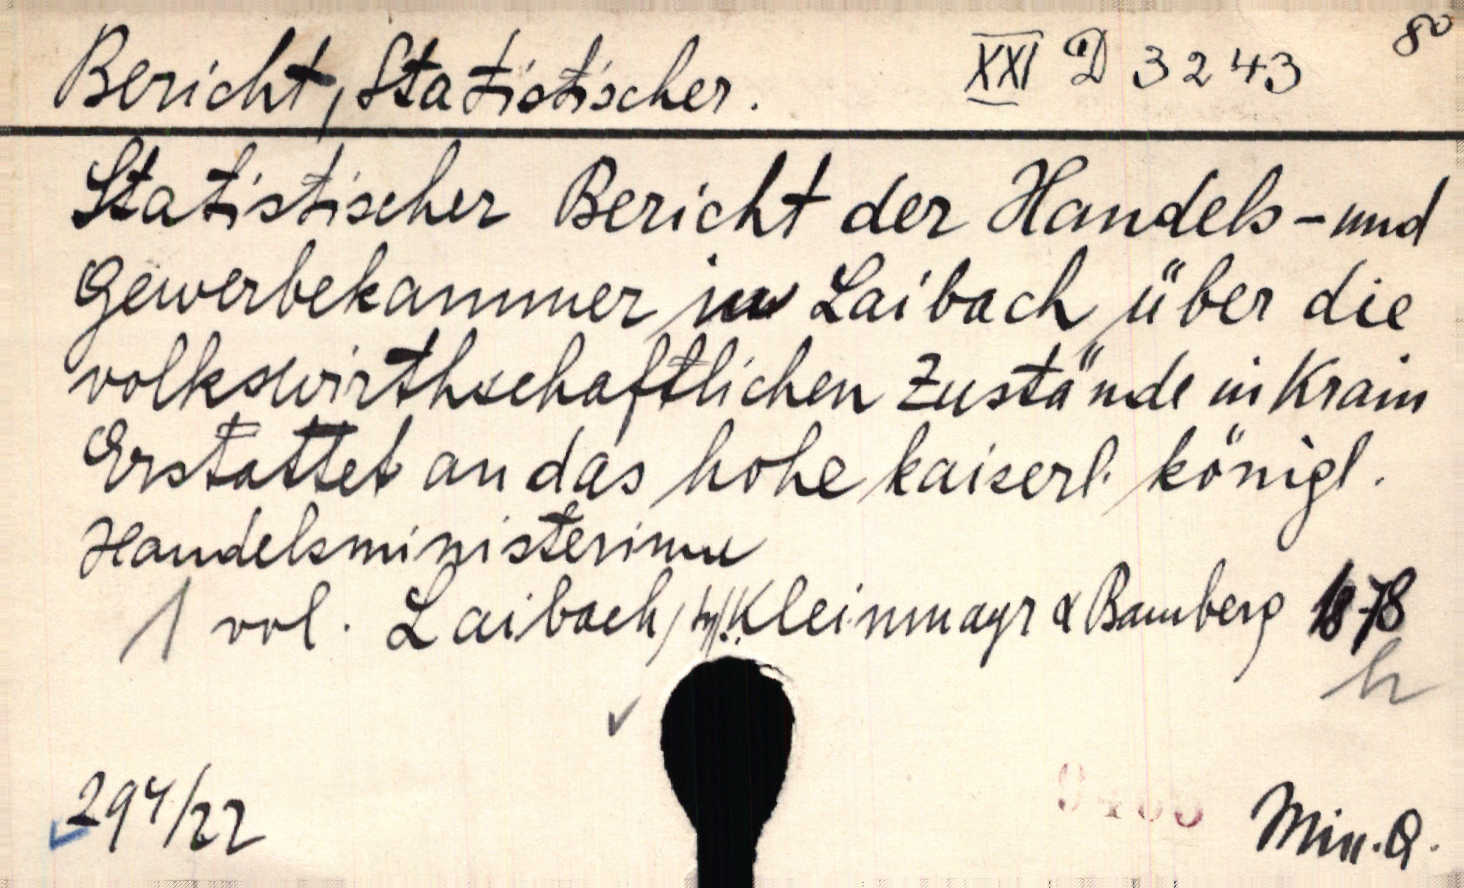 Bericht, Statistischer. XXI D 3243 8°
Statistischer Bericht der Handels- und
Gewerbekammer in Laibach über die
volkswirthschaftlichen Zustände in Krain
Erstattet an das hohe kaiserl. königl.
Handelsministerium
1 vol. Laibach, Kleinmayr & Bamberg 1878
h
294/22
Min. Q.